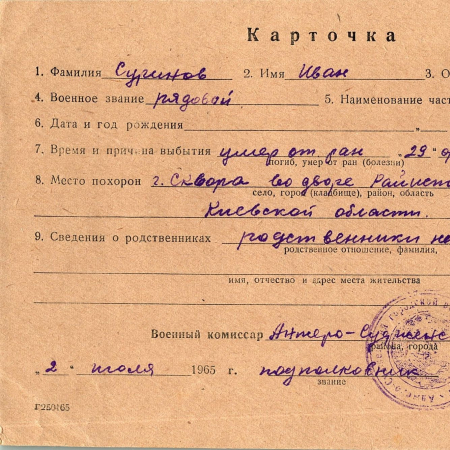 Карточка
1. Фамилия Суринов 2. Имя Иван 3. О
4. Военное звание рядовой 5. Наименование част
6. Дата и год рождения „
7. Время и причина выбытия умер от ран „29"
погиб, умер от ран (болезни)
8. Место похорон г. Сквира во дворе Райиспо
село, город (кладбище), район, область
Киевской области.
9. Сведения о родственниках родственники не
родственное отношение, фамилия,
имя, отчество и адрес места жительства
Военный комиссар Анжеро-Судженс
района, города
„2" июля 1965 г. подполковник
звание
Г250165